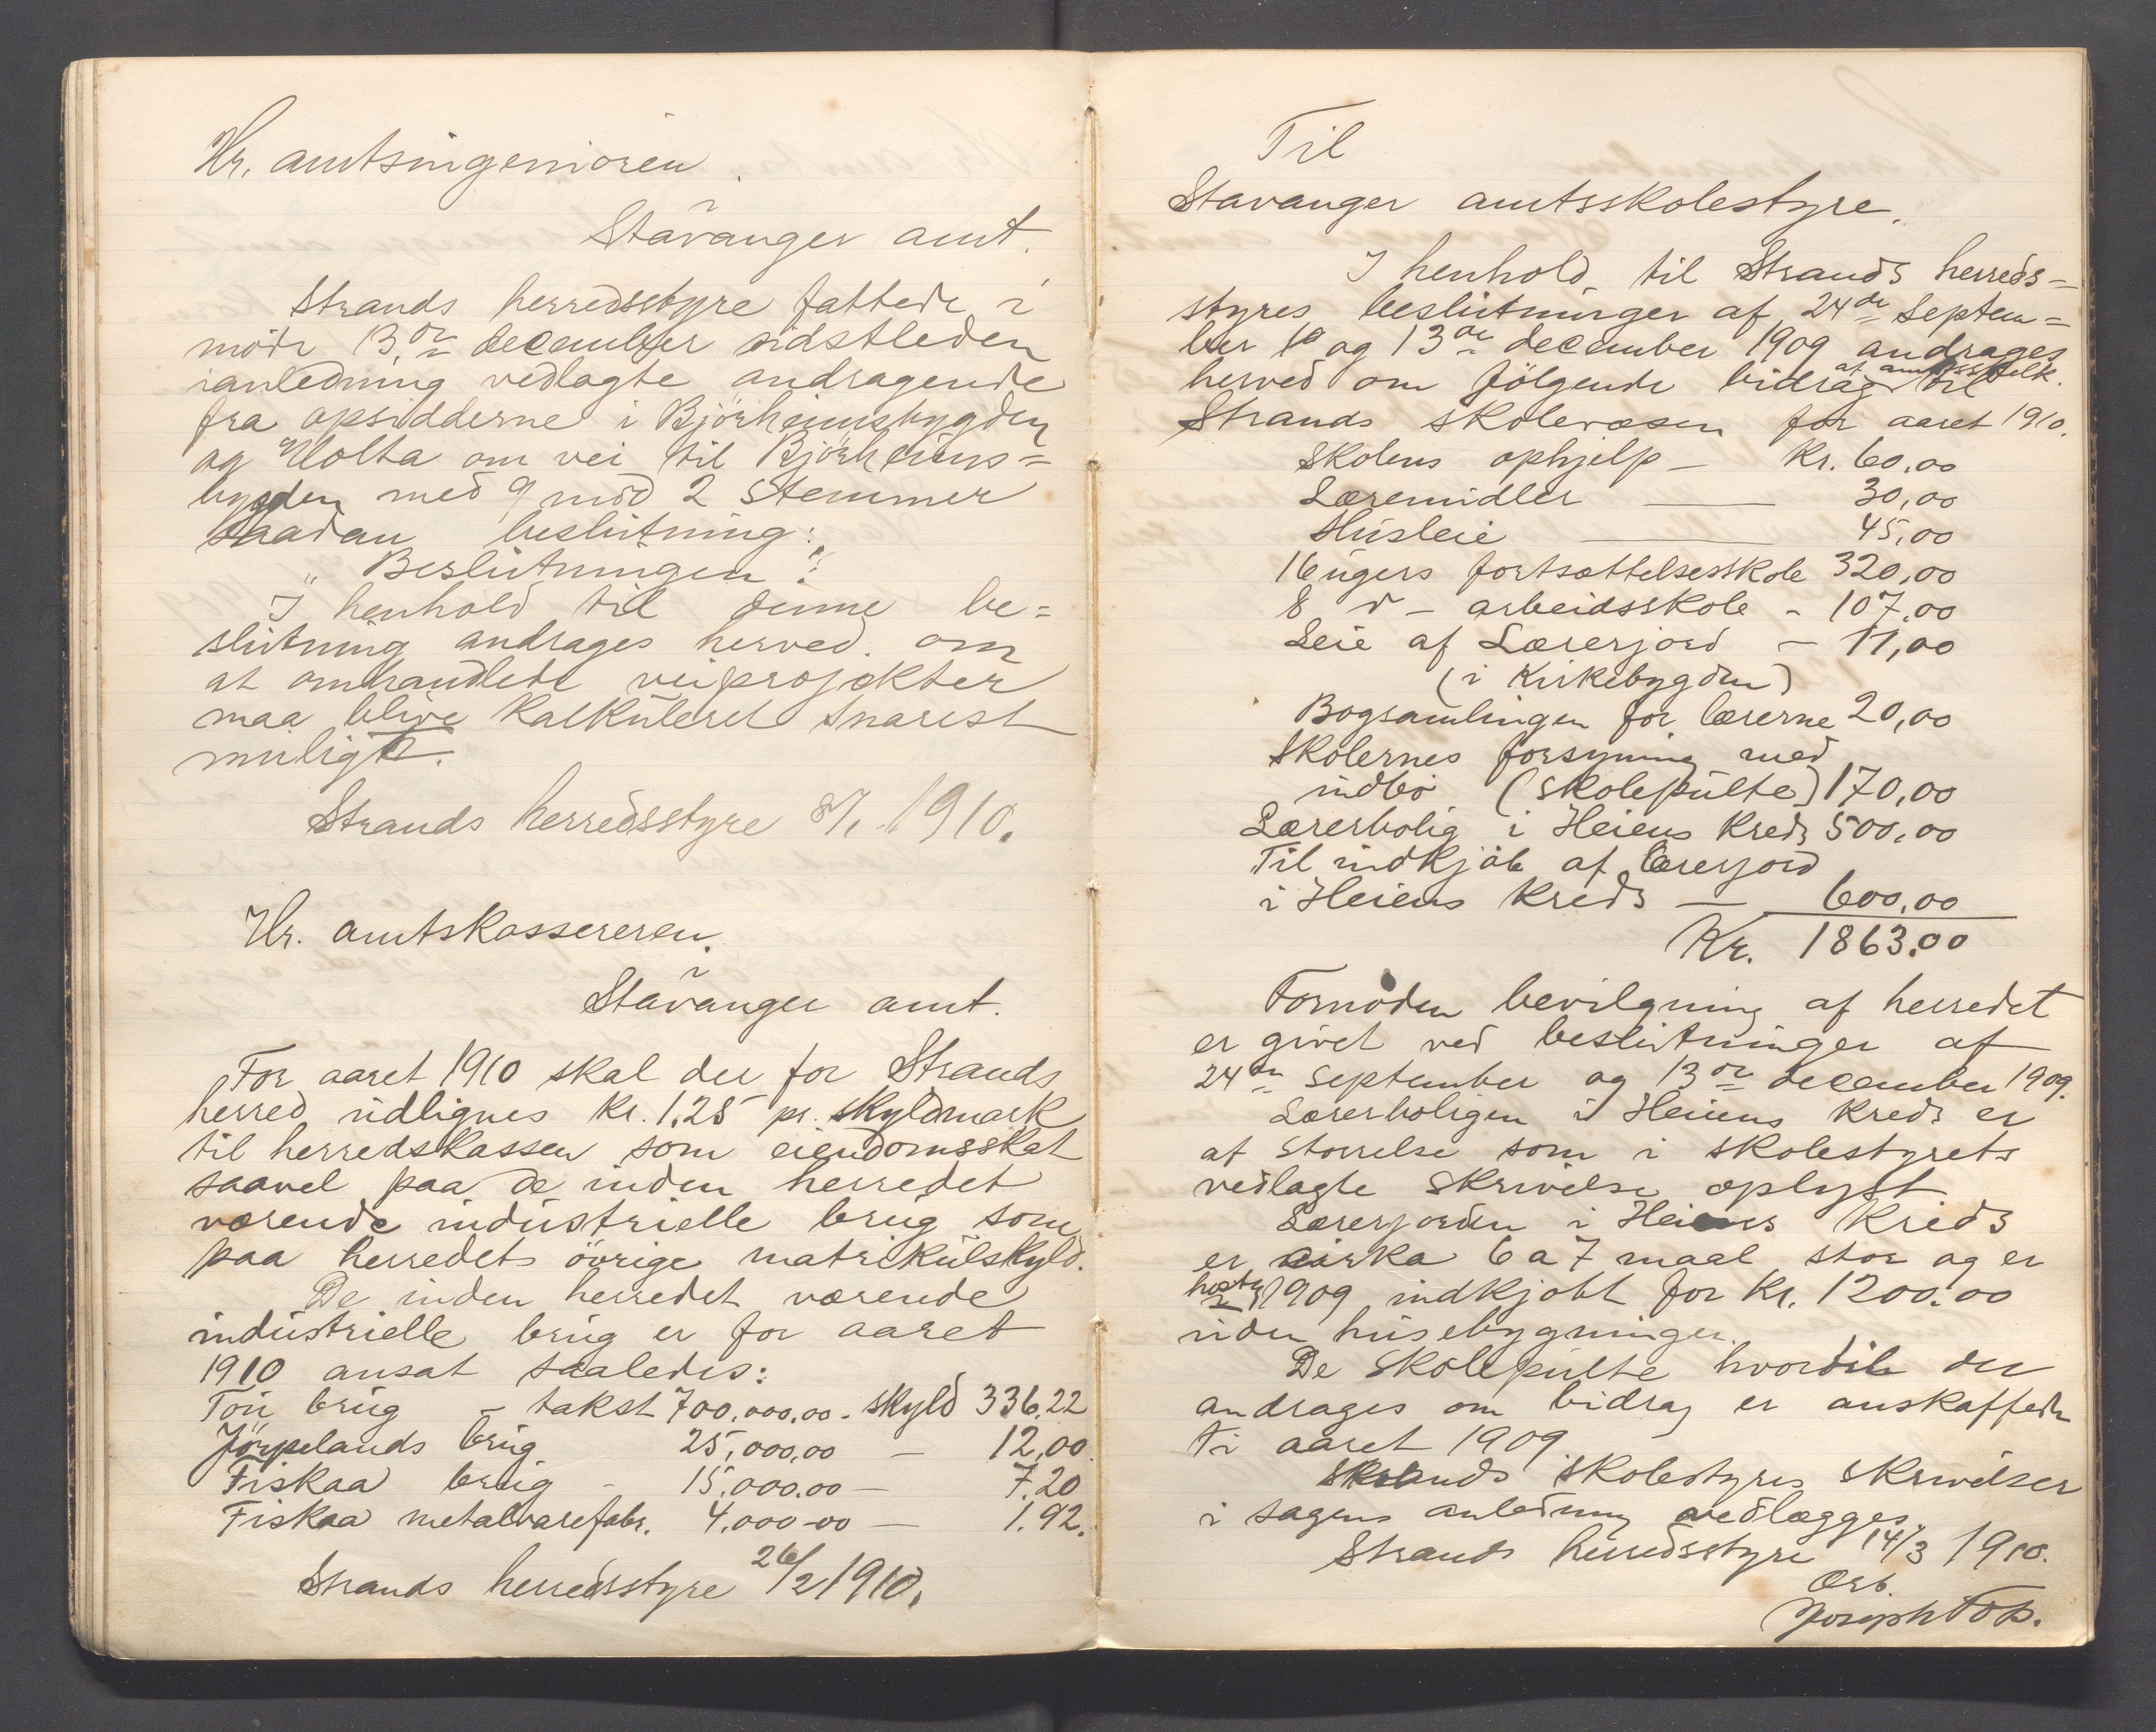 Hr. amtsingeniøren.
Stavanger amt.
Strands herredsstyre fattede i
møde 13de december sidstleden
ianledning vedlagte andragende
fra opsidderne i Bjørheimsbygden
og Holta om vei til Bjørheims=
bygden med 9 mod 2 stemmer
saadan beslutning:
„Beslutningen"
I henhold til denne be=
slutning andrages herved om
at omhandlede veiprojekter
maa blive kalkuleret snarest
muligt.
Strands herredsstyre 8/1 1910.
Hr. amtskassereren.
Stavanger amt.
For aaret 1910 skal der for Strands
herred udlignes kr. 1.25 pr. skyldmark
til herredskassen som eiendomsskat
saavel paa de inden herredet
værende industrielle brug som
paa herredets øvrige matrikulskyld.
De inden herredet værende
industrielle brug er for aaret
1910 ansat saaledes:
Tou brug - takst 700,000,00 - skyld 336,22
Jørpelands brug 25,000,00 — 12,00
Fiskaa brug - 15,000.00 — 7.20
Fiskaa metalvarefabr. 4,000-00 — 1.92.
Strands herredsstyre 26/2 1910.
Til
Stavanger amtsskolestyre.
I henhold til Strands herreds=
styres beslutninger af 24de septem=
ber og 13de december 1909 andrages
herved om følgende bidrag af amtsskolek. til
Strands skolevæsen for aaret 1910.
Skolens ophjelp — Kr. 60,00
Læremidler — 30,00
Husleie — 45,00
16 ugers fortsættelsesskole 320,00
8 d - arbeidsskole - 107,00
Leie af Lærerjord - 11,00
(i Kirkebygden)
Bogsamlingen for lærerne 20,00
Skolernes forsyning med
indbo (skolepulte) 170,00
Lærerbolig i Heiens Kreds 500,00
Til indkjøb af lærerjord
i Heiens Kreds — 600,00
Kr. 1863.00
Fornøden bevilgning af herredet
er givet ved beslutninger af
24de september og 13de december 1909.
Lærerboligen i Heiens Kreds er
af størrelse som i skolestyrets
vedlagte skrivelse oplyst
Lærerjorden i Heiens Kreds
er cirka 6 a 7 maal stor og er
1909 indkjøbt for Kr. 1200.00
uden husebygninger.
De skolepulte hvortil der
andrages om bidrag er anskaffede
i aaret 1909
Strands skolestyres skrivelser
i sagens anledning vedlægges.
Strands herredsstyre 14/3 1910.
Ærb.
Joseph Fos.